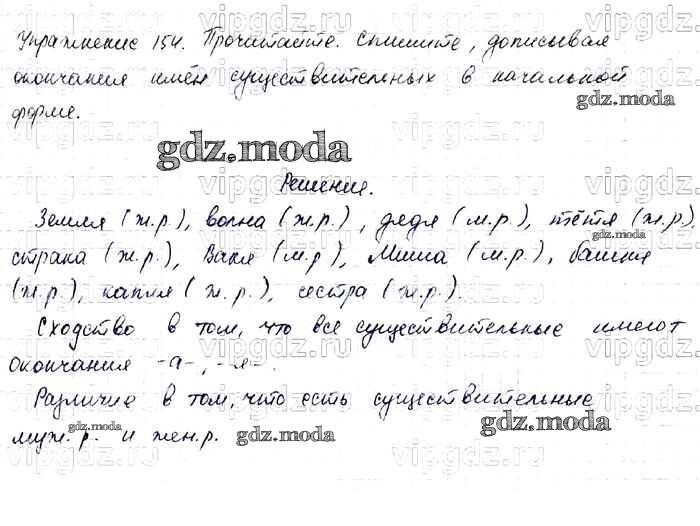 Упражнение 154. Прочитайте. Спишите, дописывая
окончания имён существительных в начальной
форме.
gdz.moda
gdz.moda
Решение.
Земля (ж.р.), волна (ж.р.), дядя (м.р.), тётя (ж.р.),
gdz.moda
страна (ж.р.), Ваня (м.р), Миша (м.р.), башня
(ж.р.), капля (ж.р.), сестра (ж.р.).
Сходство в том, что все существительные имеют
окончания -а-, -я-.
Различие в том, что есть существительные
муж.р. и жен.р.
gdz.moda
gdz.moda
vipgdz.ru